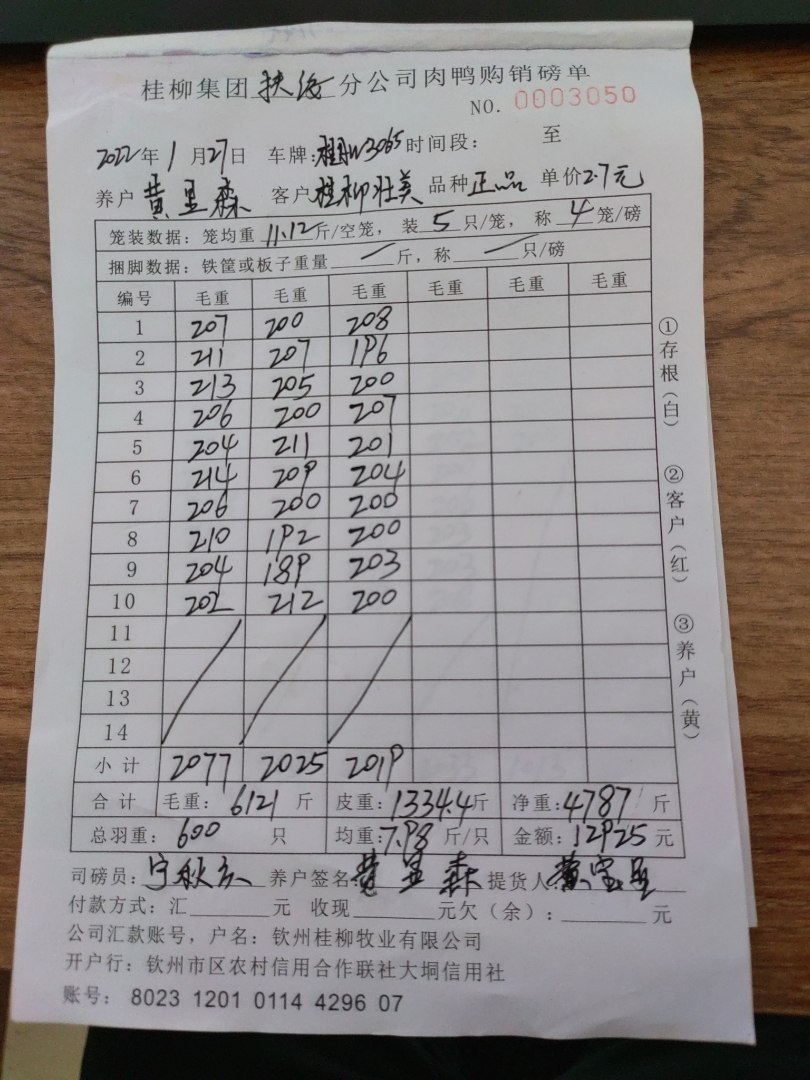 桂柳集团扶海分公司肉鸭购销磅单
NO. 0003050
2022年1月27日 车牌: 3065 时间段: 至
养户 黄显森 客户 桂柳壮美 品种 正品 单价2.7元
笼装数据: 笼均重 11.12 斤/空笼, 装 5 只/笼, 称 4 笼/磅
捆脚数据: 铁筐或板子重量 / 斤, 称 / 只/磅
编号 毛重 毛重 毛重 毛重 毛重 毛重
1 207 200 208
2 211 207 196
3 213 205 200
4 206 200 207
5 204 211 201
6 214 209 204
7 206 200 200
8 210 192 200
9 204 189 203
10 202 212 200
11
12
13
14
小计 2077 2025 2019
合计 毛重: 6121 斤 皮重: 1334.4斤 净重: 4787 斤
总羽重: 600 只 均重: 7.98 斤/只 金额: 12925 元
司磅员: 养户签名: 黄显森 提货人:
付款方式: 汇 元 收现 元欠(余): 元
公司汇款账号, 户名: 钦州桂柳牧业有限公司
开户行: 钦州市区农村信用合作联社大垌信用社
账号: 8023 1201 0114 4296 07
①存根(白)
②客户(红)
③养户(黄)